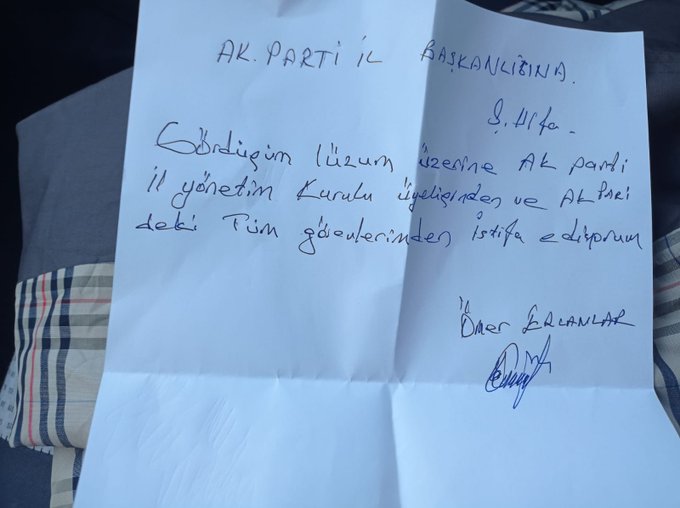 AK. PARTİ İL BAŞKANLIĞINA.
Ş. Urfa.
Gördüğüm lüzum üzerine AK parti
il yönetim Kurulu üyeliğinden ve AK PARİ
deki Tüm görevlerimden istifa ediyorum
Ömer ERLANLAR